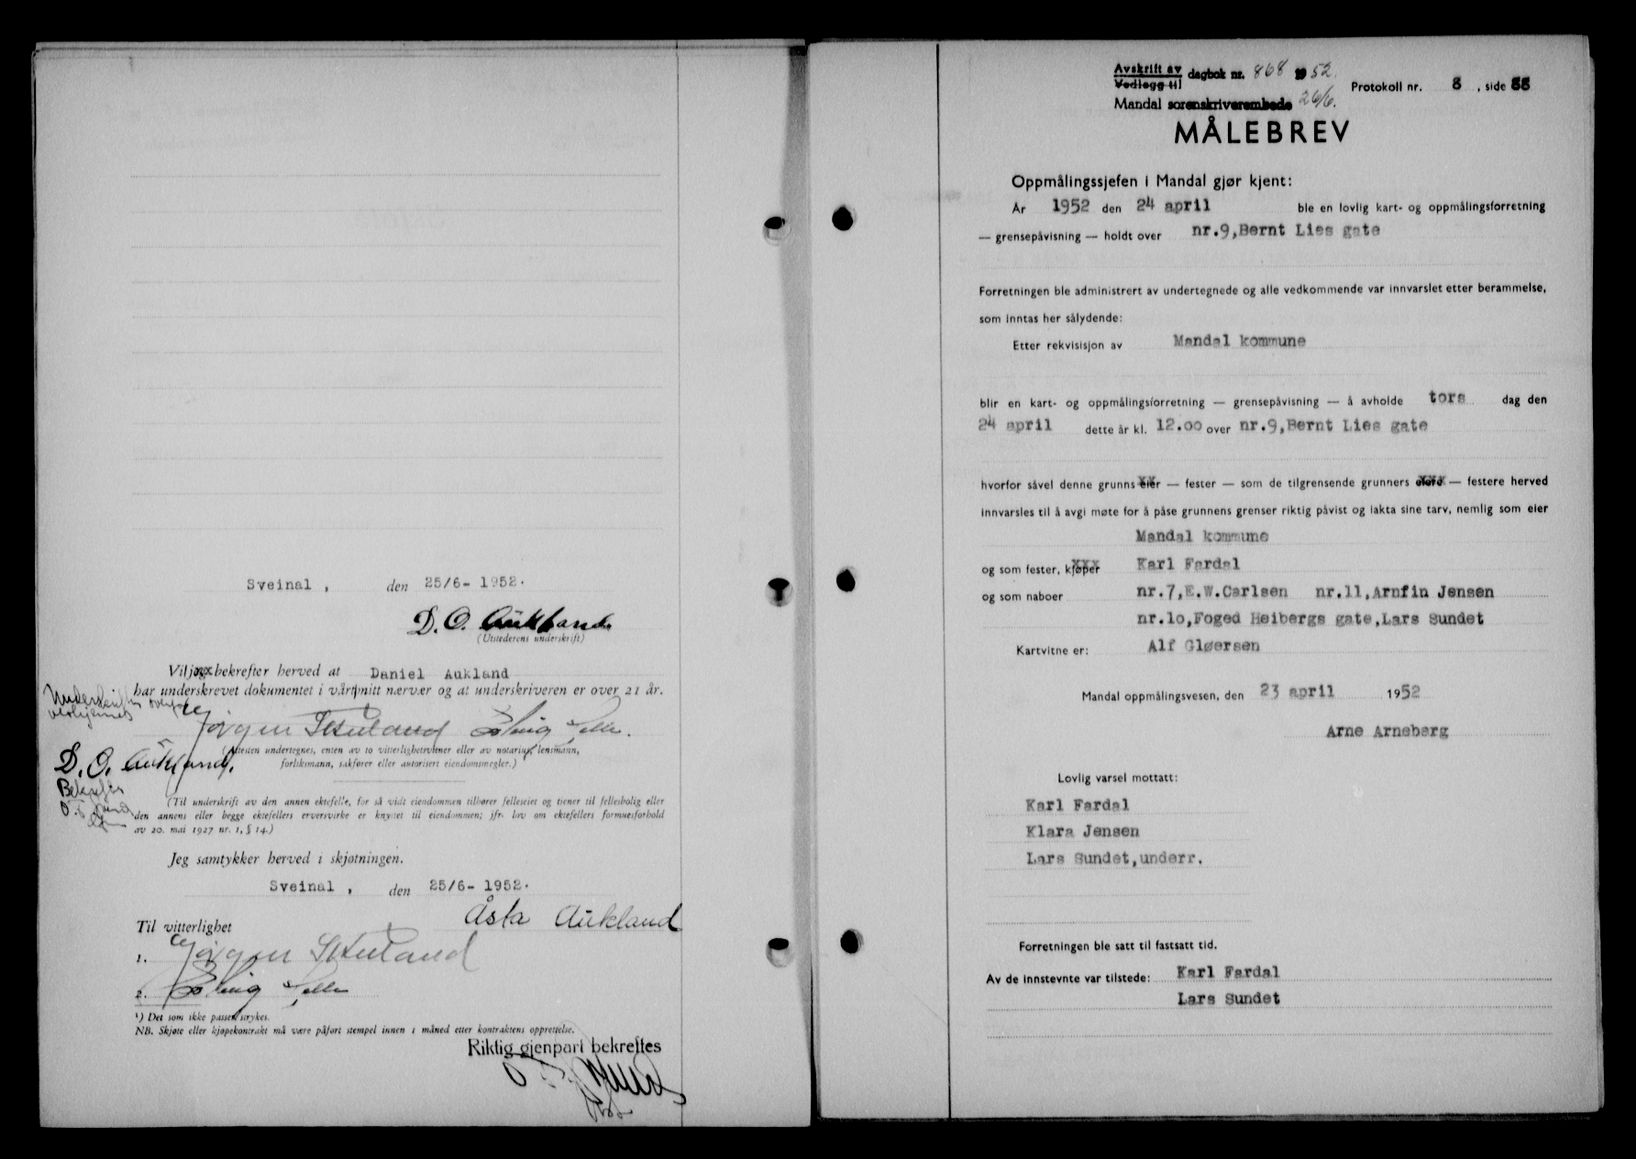 Sveinal , den 25/6- 1952.
D. O. Aukland
(Utstederens underskrift)
Vi/jeg bekrefter herved at Daniel Aukland
har underskrevet dokumentet i vårt/mitt nærvær og at underskriveren er over 21 år.
D. O. Aukland.
(Attesten undertegnes, enten av to vitterlighetsvitner eller av notarius, lensmann,
forliksmann, sakfører eller autorisert eiendomsmegler.)
(Til underskrift av den annen ektefelle, for så vidt eiendommen tilhører felleseiet og tjener til fellesbolig eller
den annens eller begge ektefellers erversvirke er knyttet til eiendommen; jfr. lov om ektefellers formuesforhold
av 20. mai 1927 nr. 1, § 14.)
Jeg samtykker herved i skjøtningen.
Sveinal , den 25/6- 1952.
Åsta Aukland
Til vitterlighet
1.
2.
¹) Det som ikke passer strykes.
NB. Skjøte eller kjøpekontrakt må være påført stempel innen 1 måned etter kontraktens opprettelse.
Riktig gjenpart bekreftes
Avskrift av
Vedlegg til dagbok nr. 868 1952.
Mandal sorenskriverembede 26/6.
Protokoll nr. 8 , side 55
MÅLEBREV
Oppmålingssjefen i Mandal gjør kjent:
År 1952 den 24 april ble en lovlig kart- og oppmålingsforretning
— grensepåvisning — holdt over nr.9,Bernt Lies gate
Forretningen ble administrert av undertegnede og alle vedkommende var innvarslet etter berammelse,
som inntas her sålydende:
Etter rekvisisjon av Mandal kommune
blir en kart- og oppmålingsforretning — grensepåvisning — å avholde tors dag den
24 april dette år kl. 12.oo over nr.9,Bernt Lies gate
hvorfor såvel denne grunns eier — fester — som de tilgrensende grunners eiere — festere herved
innvarsles til å avgi møte for å påse grunnens grenser riktig påvist og iakta sine tarv, nemlig som eier
Mandal kommune
og som fester, kjøper Karl Fardal
og som naboer nr.7,E.W.Carlsen nr.11,Arnfin Jensen
nr.1o,Foged Heibergs gate,Lars Sundet
Kartvitne er: Alf Gløersen
Mandal oppmålingsvesen, den 23 april 1952
Arne Arneberg
Lovlig varsel mottatt:
Karl Fardal
Klara Jensen
Lars Sundet,underr.
Forretningen ble satt til fastsatt tid.
Av de innstevnte var tilstede: Karl Fardal
Lars Sundet